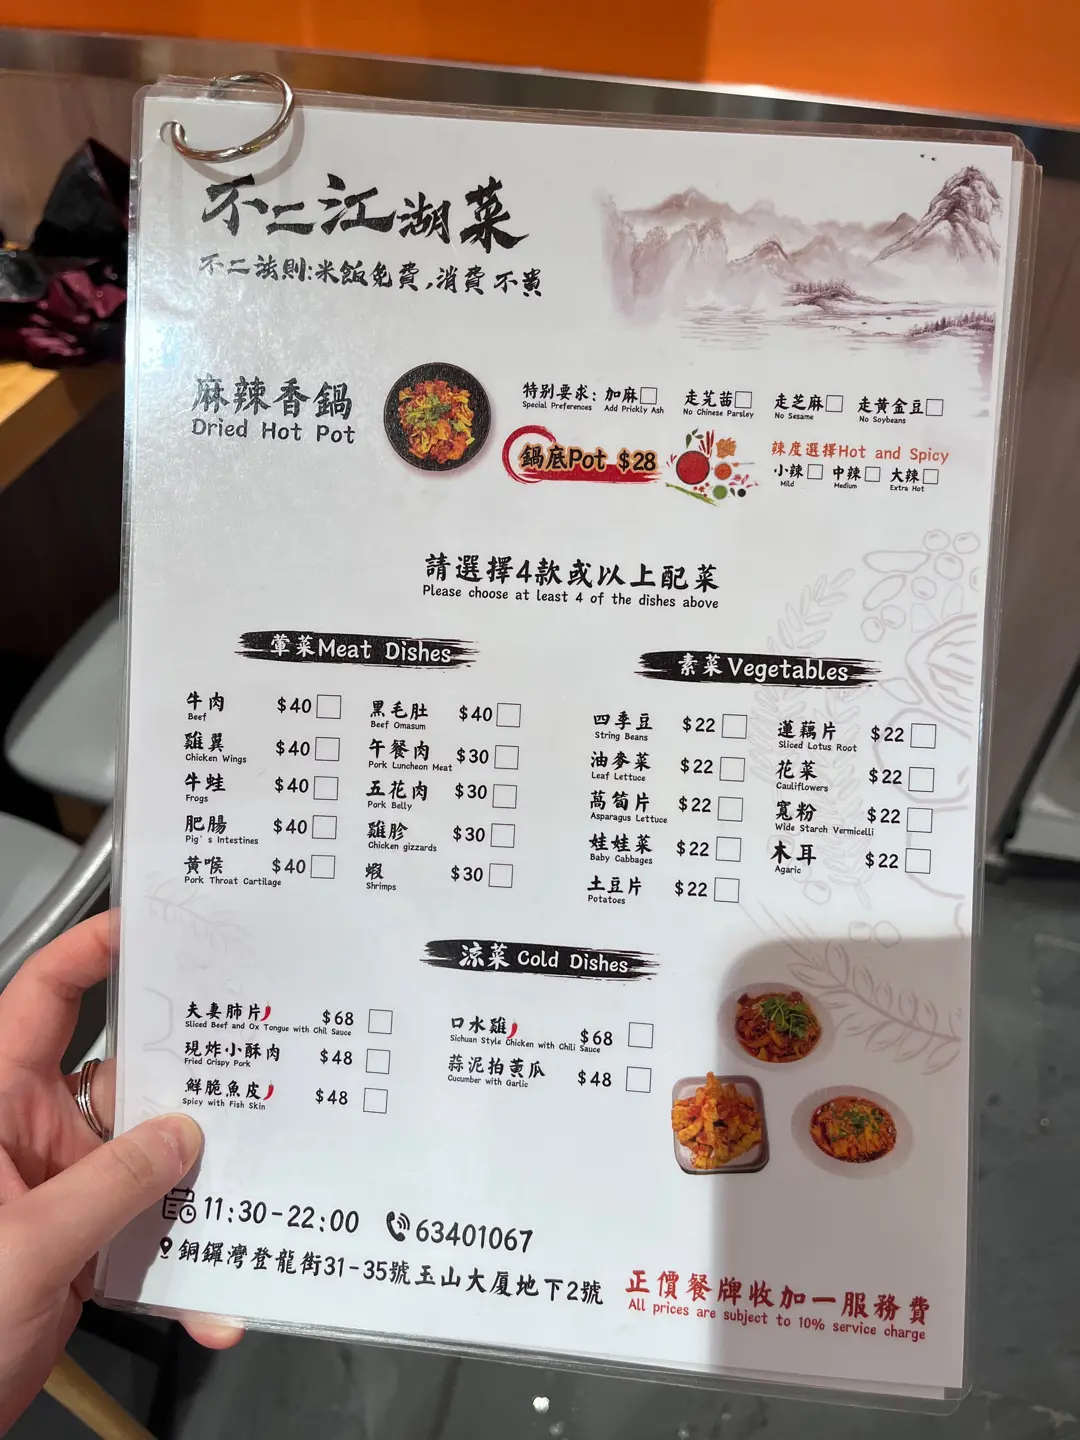 不二江湖菜
不二法則:米飯免費,消費不貴
麻辣香鍋
Dried Hot Pot
特别要求: 加麻 走芫茜 走芝麻 走黃金豆
Special Preferences Add Prickly Ash No Chinese Parsley No Sesame No Soybeans
鍋底Pot $28
辣度選擇Hot and Spicy
小辣 中辣 大辣
Mild Medium Extra Hot
請選擇4款或以上配菜
Please choose at least 4 of the dishes above
葷菜Meat Dishes
牛肉 $40
Beef
雞翼 $40
Chicken Wings
牛蛙 $40
Frogs
肥腸 $40
Pig's Intestines
黃喉 $40
Pork Throat Cartilage
黑毛肚 $40
Beef Omasum
午餐肉 $30
Pork Luncheon Meat
五花肉 $30
Pork Belly
雞胗 $30
Chicken gizzards
蝦 $30
Shrimps
素菜Vegetables
四季豆 $22
String Beans
油麥菜 $22
Leaf Lettuce
萵筍片 $22
Asparagus Lettuce
娃娃菜 $22
Baby Cabbages
土豆片 $22
Potatoes
蓮藕片 $22
Sliced Lotus Root
花菜 $22
Cauliflowers
寬粉 $22
Wide Starch Vermicelli
木耳 $22
Agaric
涼菜 Cold Dishes
夫妻肺片 $68
Sliced Beef and Ox Tongue with Chil Sauce
現炸小酥肉 $48
Fried Crispy Pork
鮮脆魚皮 $48
Spicy with Fish Skin
口水雞 $68
Sichuan Style Chicken with Chili Sauce
蒜泥拍黃瓜 $48
Cucumber with Garlic
11:30-22:00 63401067
銅鑼灣登龍街31-35號玉山大厦地下2號
正價餐牌收加一服務費
All prices are subject to 10% service charge